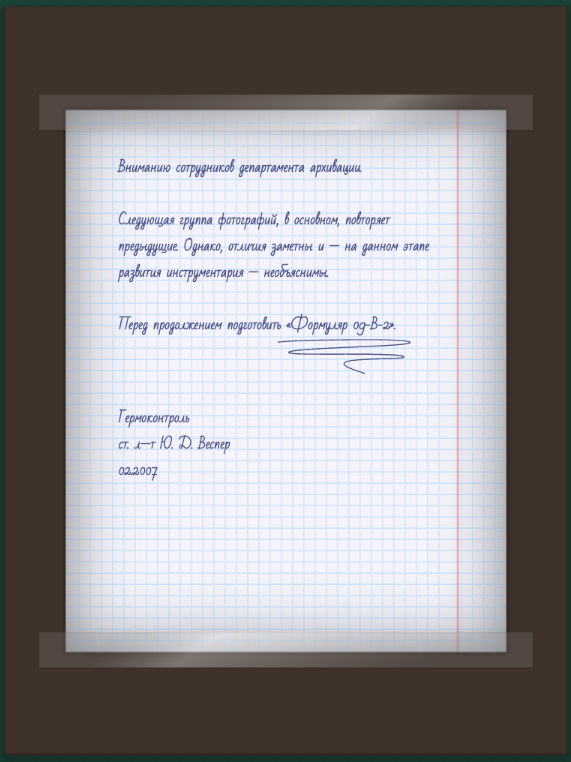 Вниманию сотрудников департамента архивации.
Следующая группа фотографий, в основном, повторяет
предыдущие. Однако, отличия заметны и — на данном этапе
развития инструментария — необъяснимы.
Перед продолжением подготовить «Формуляр од-В-2».
Гермоконтроль
ст. л—т Ю. Д. Веспер
022007